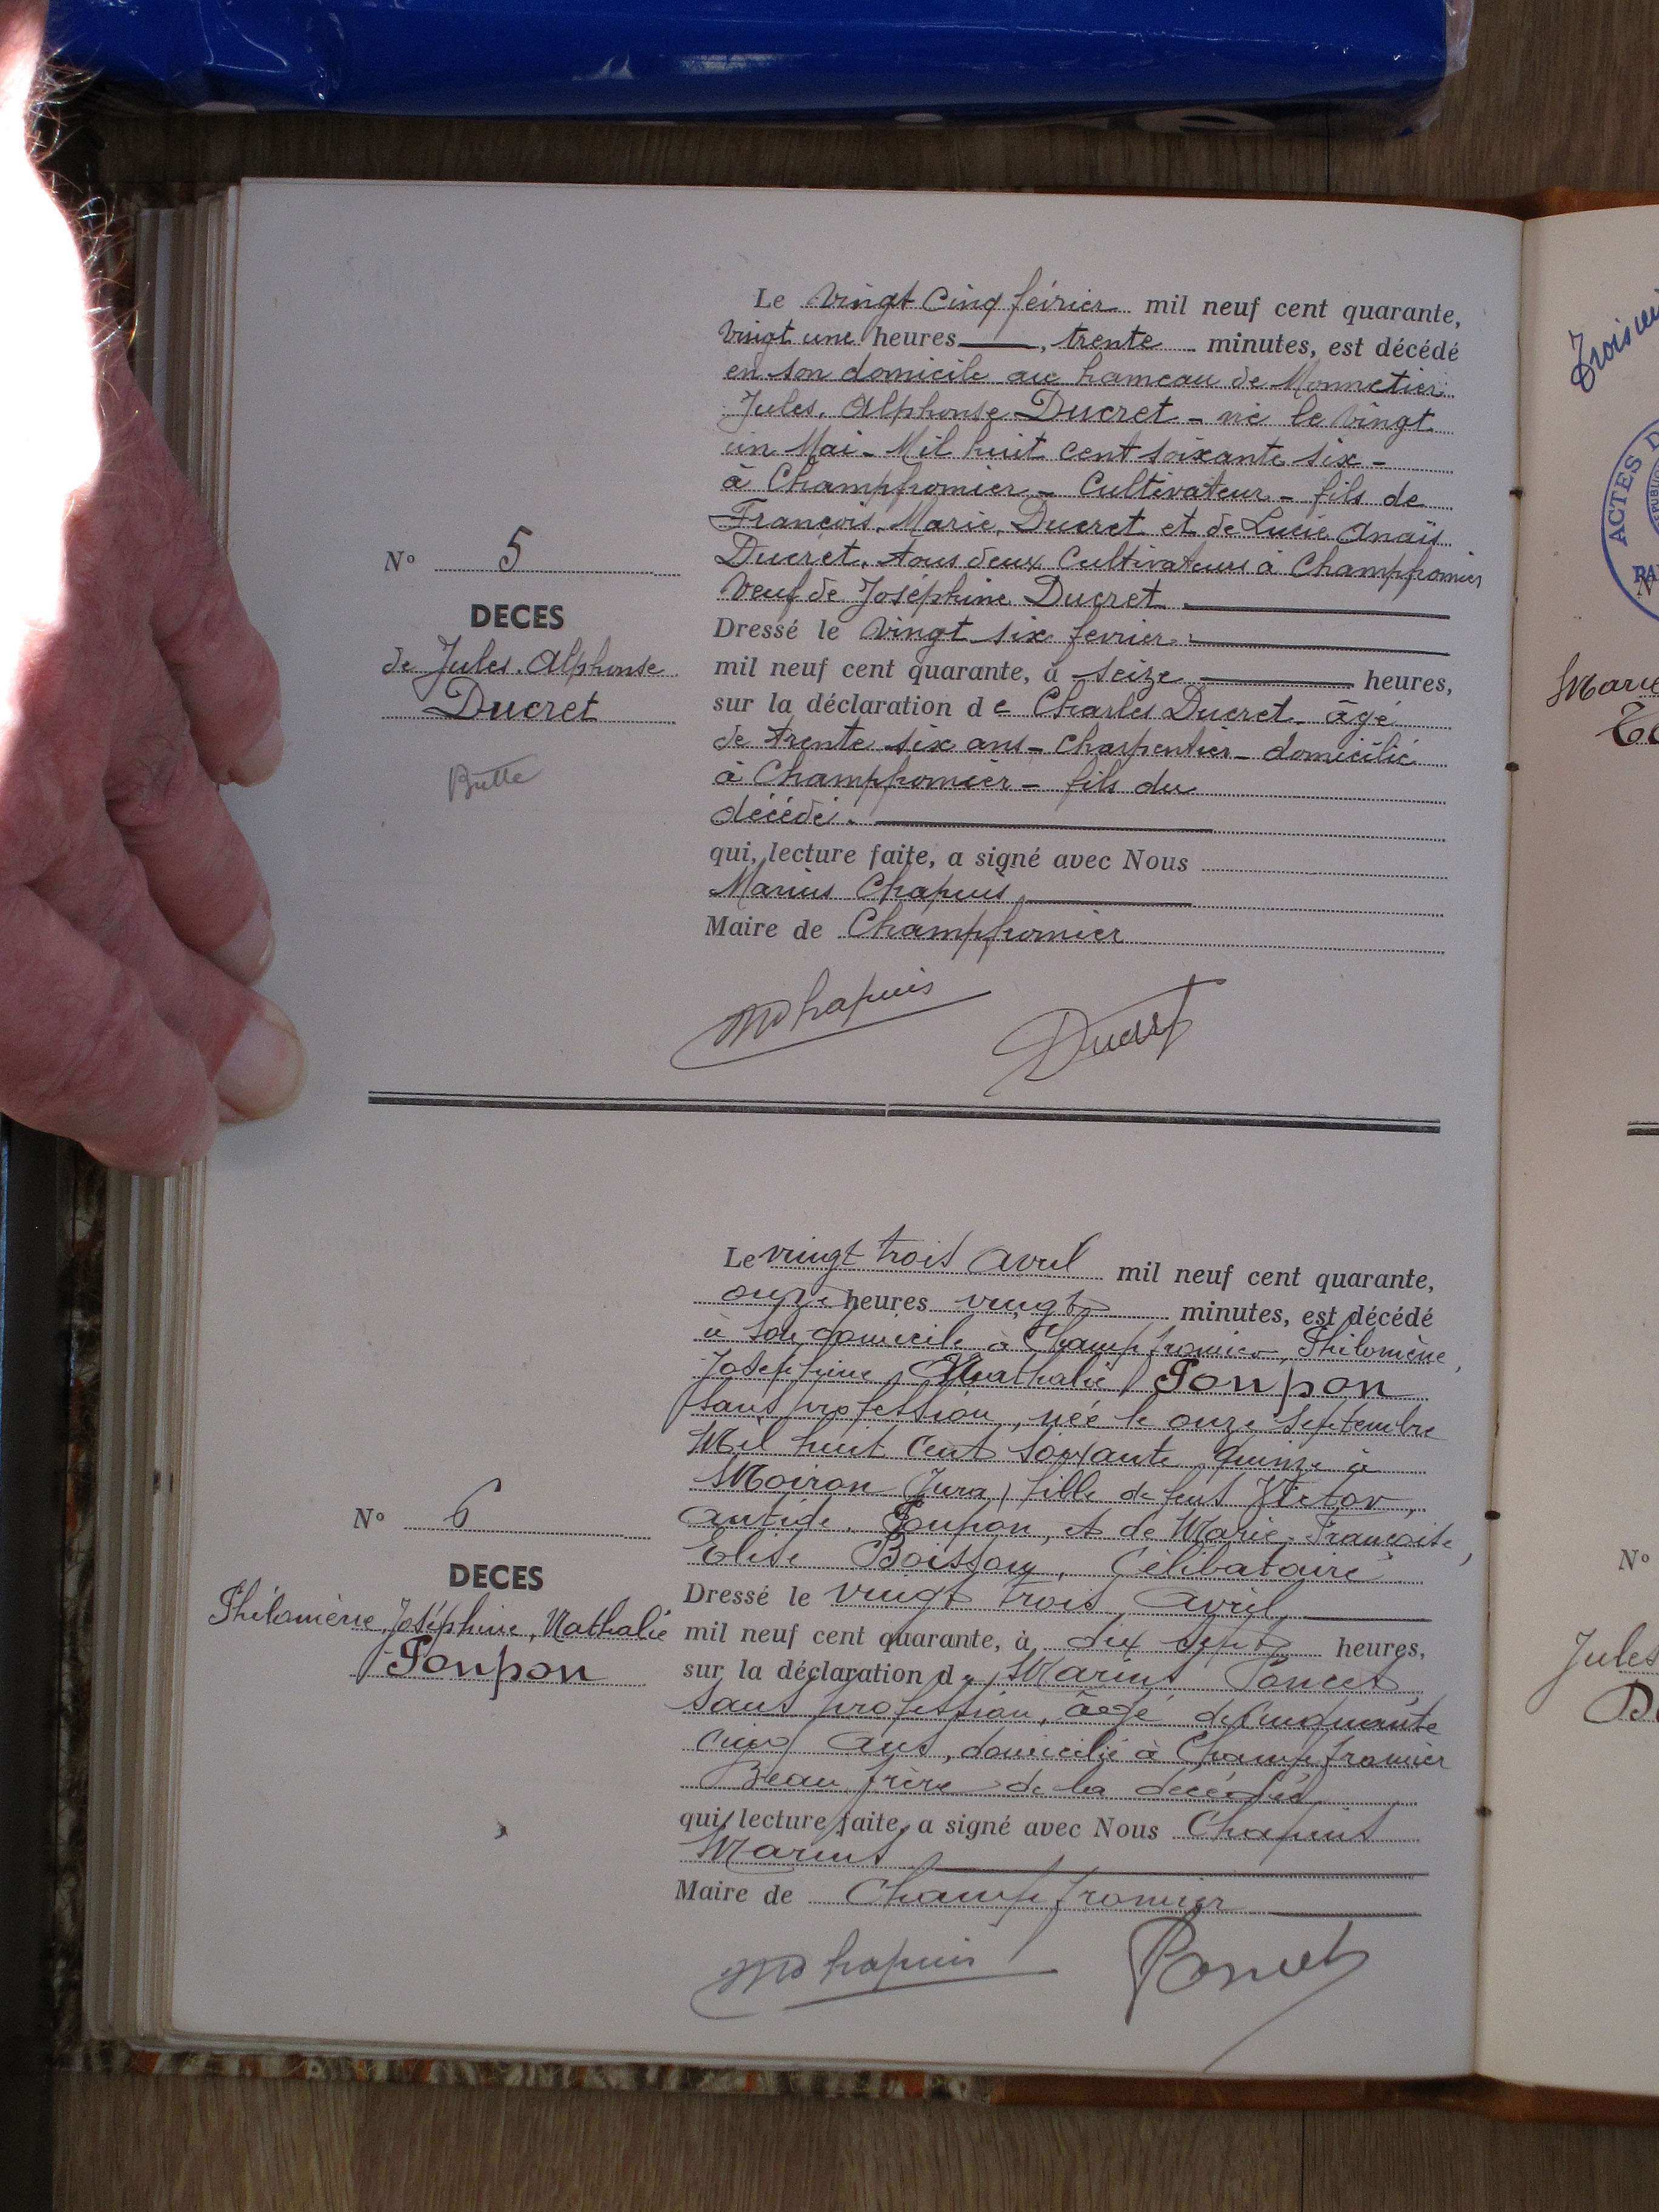 Le vingt cinq février mil neuf cent quarante,
vingt une heures, trente minutes, est décédé
en son domicile au hameau de Monnetier
Jules, Alphonse Ducret - né le vingt
un Mai - Mil huit cent soixante six -
à Champfromier - Cultivateur - fils de
François, Marie, Ducret et de Lucie Anaïs
Ducret, tous deux Cultivateurs à Champfromier
Veuf de Joséphine Ducret.
Dressé le vingt six fevrier
mil neuf cent quarante, à seize heures,
sur la déclaration de Charles Ducret - âgé
de trente six ans - charpentier - domicilié
à Champfromier - fils du
décédé.
qui, lecture faite, a signé avec Nous
Marius Chapuis
Maire de Champfromier
MChapuis Ducret
N° 5
DECES
de Jules. Alphonse
Ducret
Le vingt trois Avril mil neuf cent quarante,
onze heures vingt minutes, est décédé
à son domicile à Champfromier, Philomène,
Joséphine, Nathalie Poupon
sans profession, née le onze Septembre
Mil huit cent soixante quinze à
Moiron (Jura) fille de feus Victor,
Antide, Poupon, et de Marie-Françoise,
Elise Boisson, Célibataire
Dressé le vingt trois Avril
mil neuf cent quarante, à dix sept heures,
sur la déclaration de Marius Poncet,
sans profession, âgé de cinquante
cinq ans, domicilié à Champfromier
Beau frère de la décédée
qui, lecture faite, a signé avec Nous Chapuis
Marius
Maire de Champfromier
MChapuis Poncet
N° 6
DECES
Philomène, Joséphine, Nathalie
Poupon
ACTES D
Marie
N°
Jules